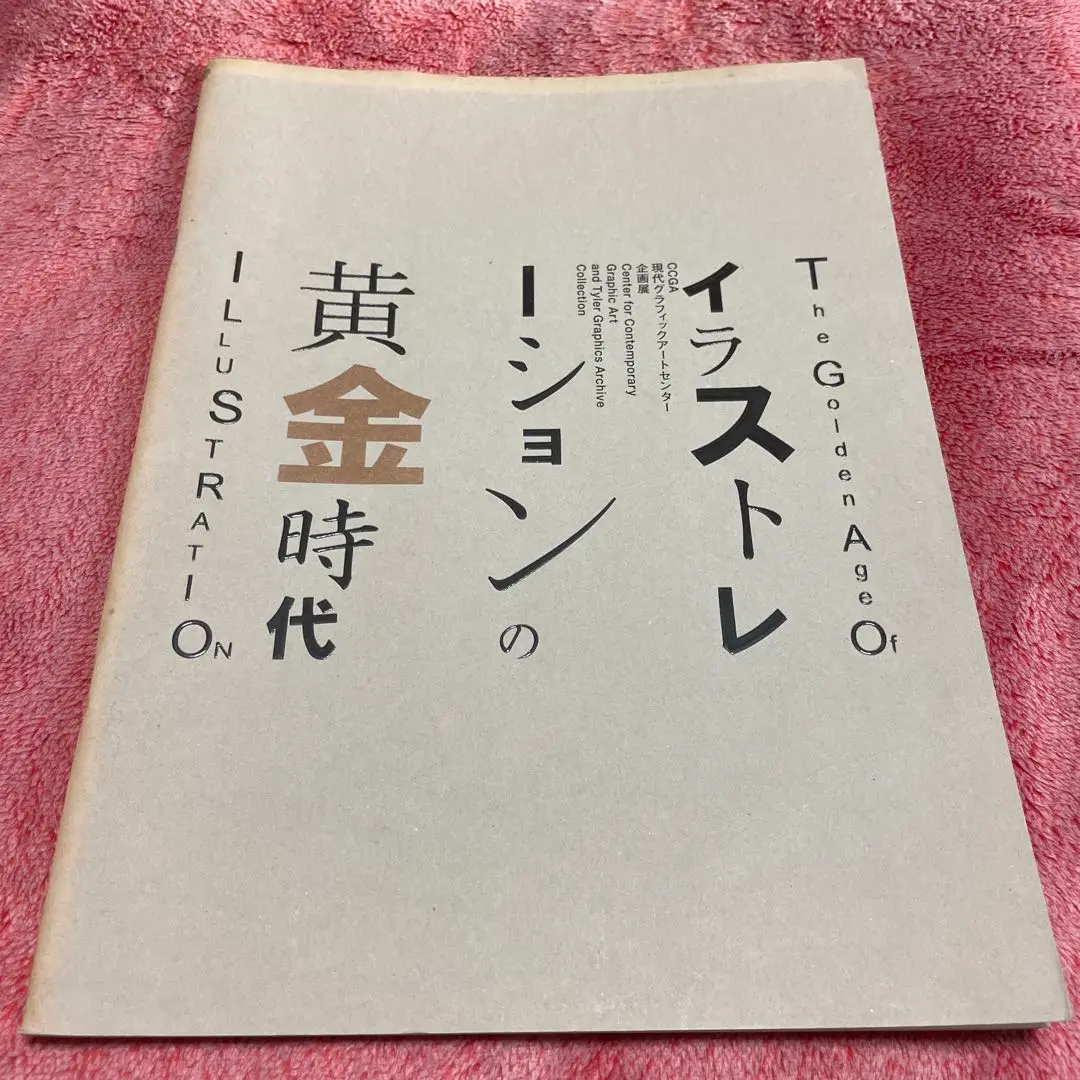 The Golden Age Of
イラストレ
CCGA
現代グラフィックアートセンター
企画展
Center for Contemporary
Graphic Art
and Tyler Graphics Archive
Collection
ーションの
黄金時代
ILLUSTRATION